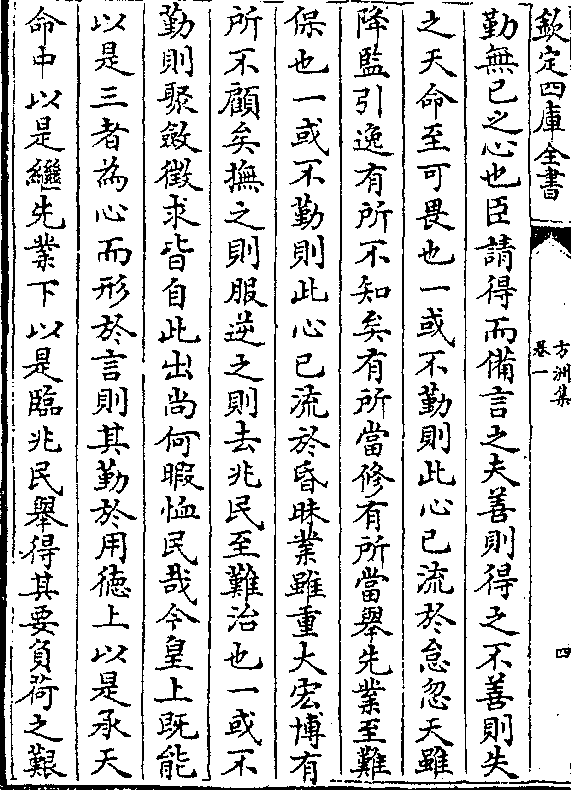 欽定四庫全書
方洲集
卷一
四
勤無已之心也臣請得而備言之夫善則得之不善則失
之天命至可畏也一或不勤則此心已流於怠忽天雖
降監引逸有所不知矣有所當修有所當舉先業至難
保也一或不勤則此心已流於昏昧業雖重大宏博有
所不顧矣撫之則服逆之則去兆民至難治也一或不
勤則聚斂徵求皆自此出尚何暇恤民哉今皇上既能
以是三者為心而形於言則其勤於用徳上以是承天
命中以是繼先業下以是臨兆民舉得其要負荷之艱